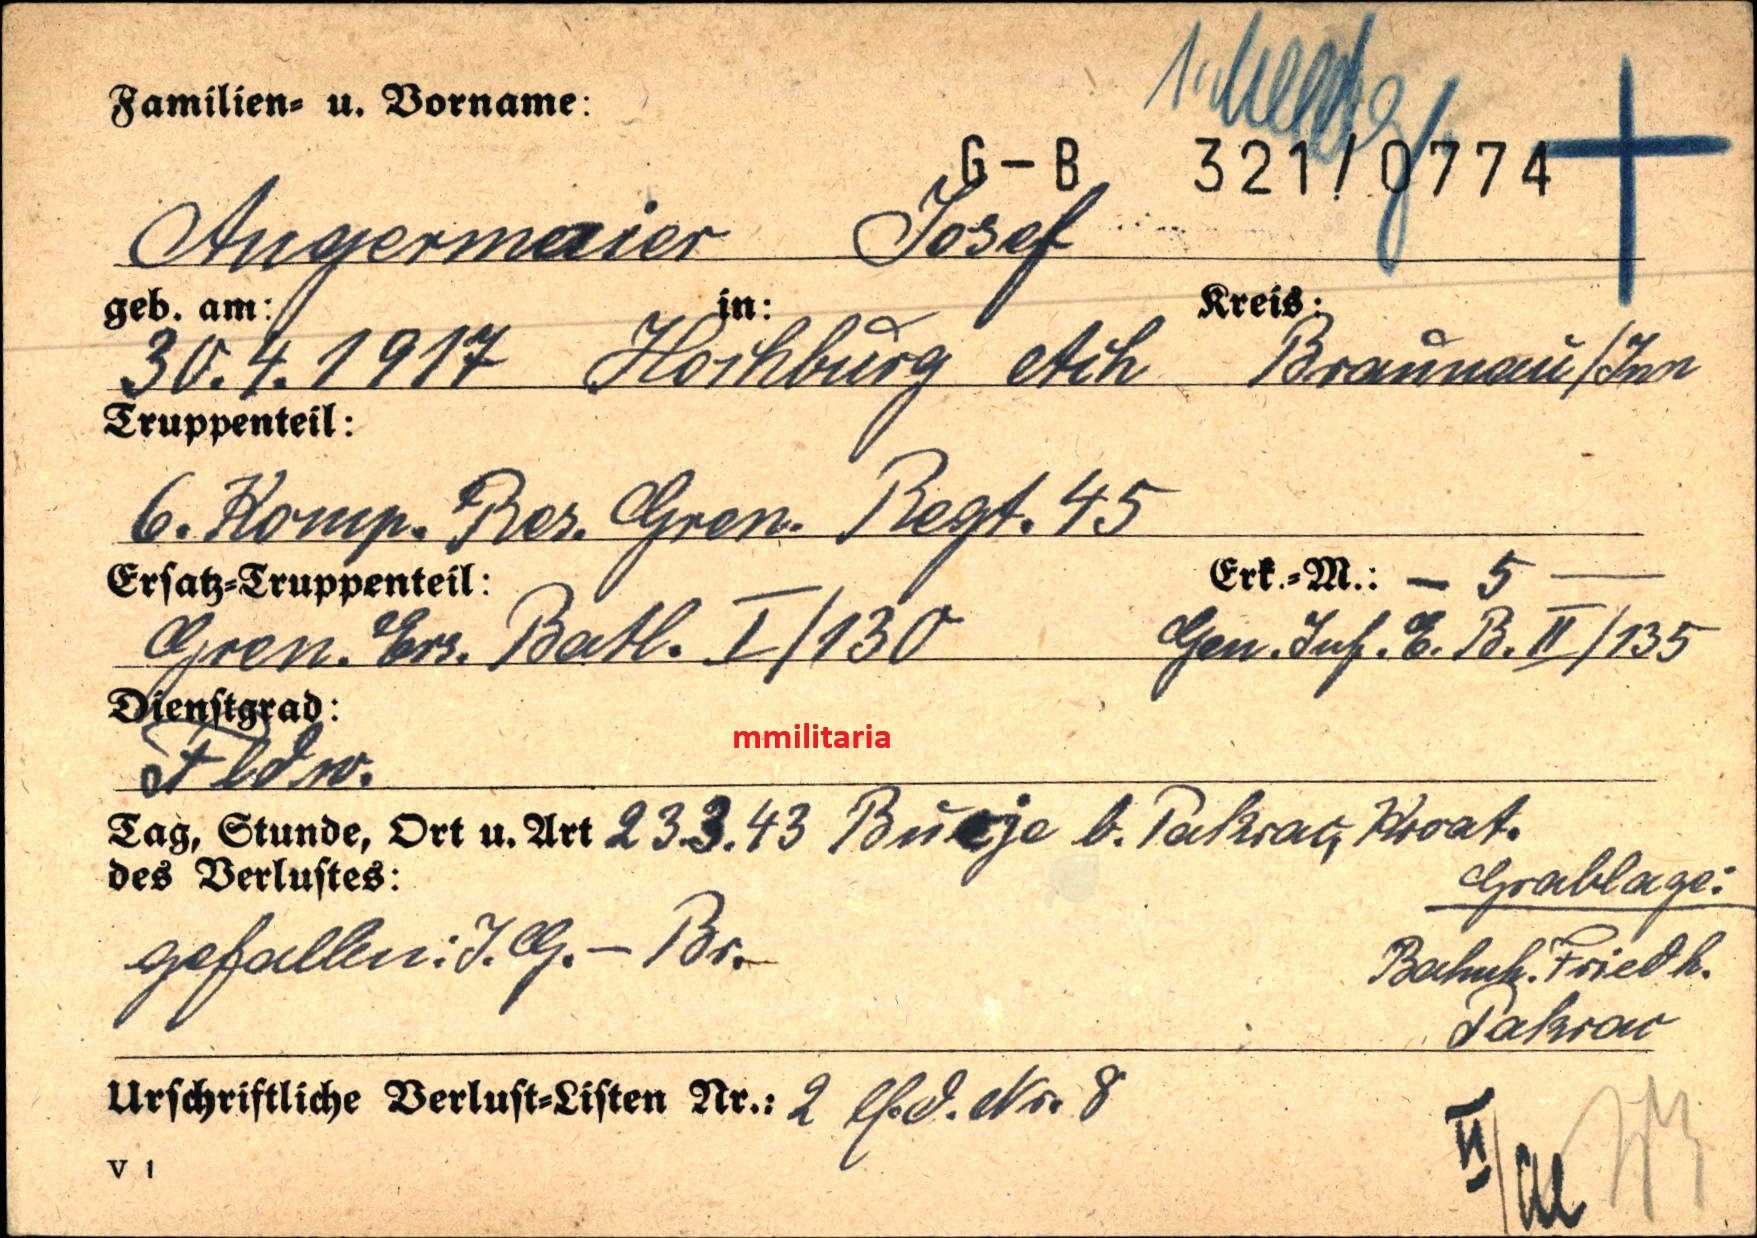 Familien- u. Vorname:
G-B 321/0774
Angermaier Josef
geb. am: in: Kreis:
30.4.1917 Hochburg Ach Braunau/Inn
Truppenteil:
6. Komp. Res. Gren. Regt. 45
Ersatz-Truppenteil: Erk.-M.: - 5 -
Gren. Ers. Batl. I/130 Gen. Inf. E. B. II/135
Dienstgrad:
Fldw.
mmilitaria
Tag, Stunde, Ort u. Art 23.3.43 Bucje b. Pakrac, Kroat.
des Verlustes:
Grablage:
gefallen: I. G. - Br.
Bahnh. Friedh.
Pakrac
Urschriftliche Verlust-Listen Nr.: 2 lf.d. Nr. 8
V 1